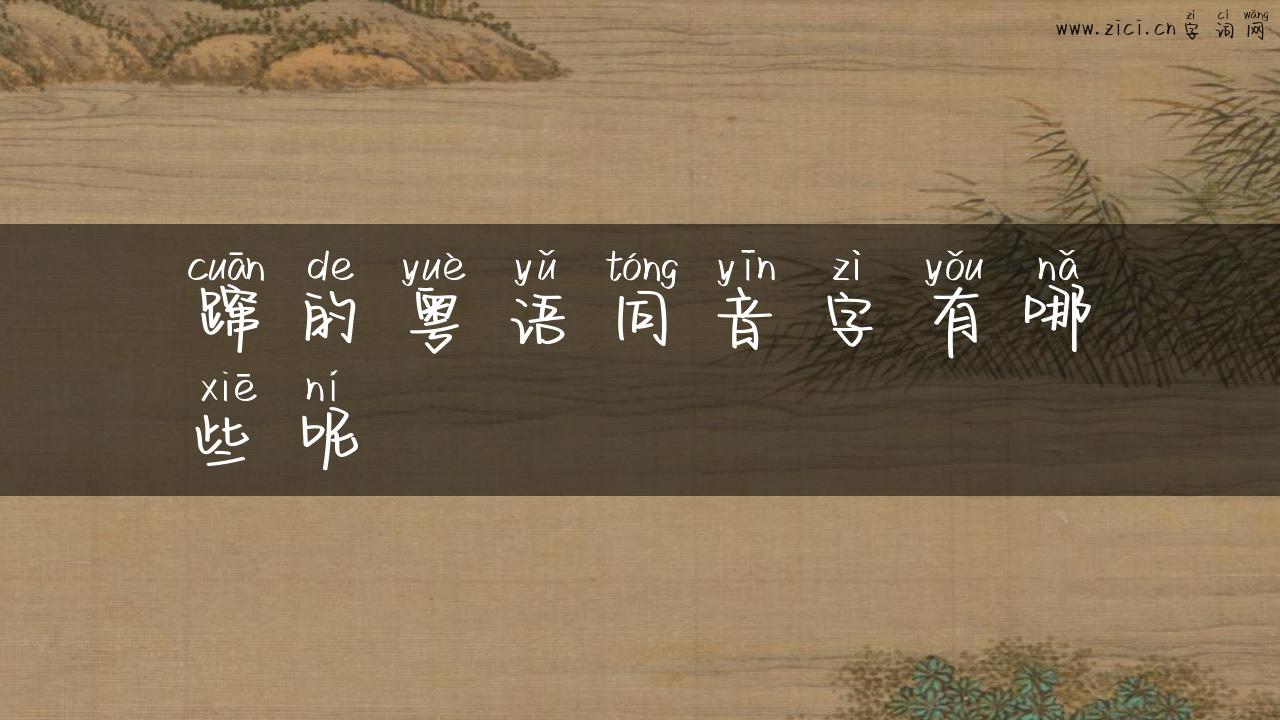 zì cí wǎng
www.zici.cn 字词网
cuān de yuè yǔ tóng yīn zì yǒu nǎ
蹿的粤语同音字有哪
xiē ní
些呢